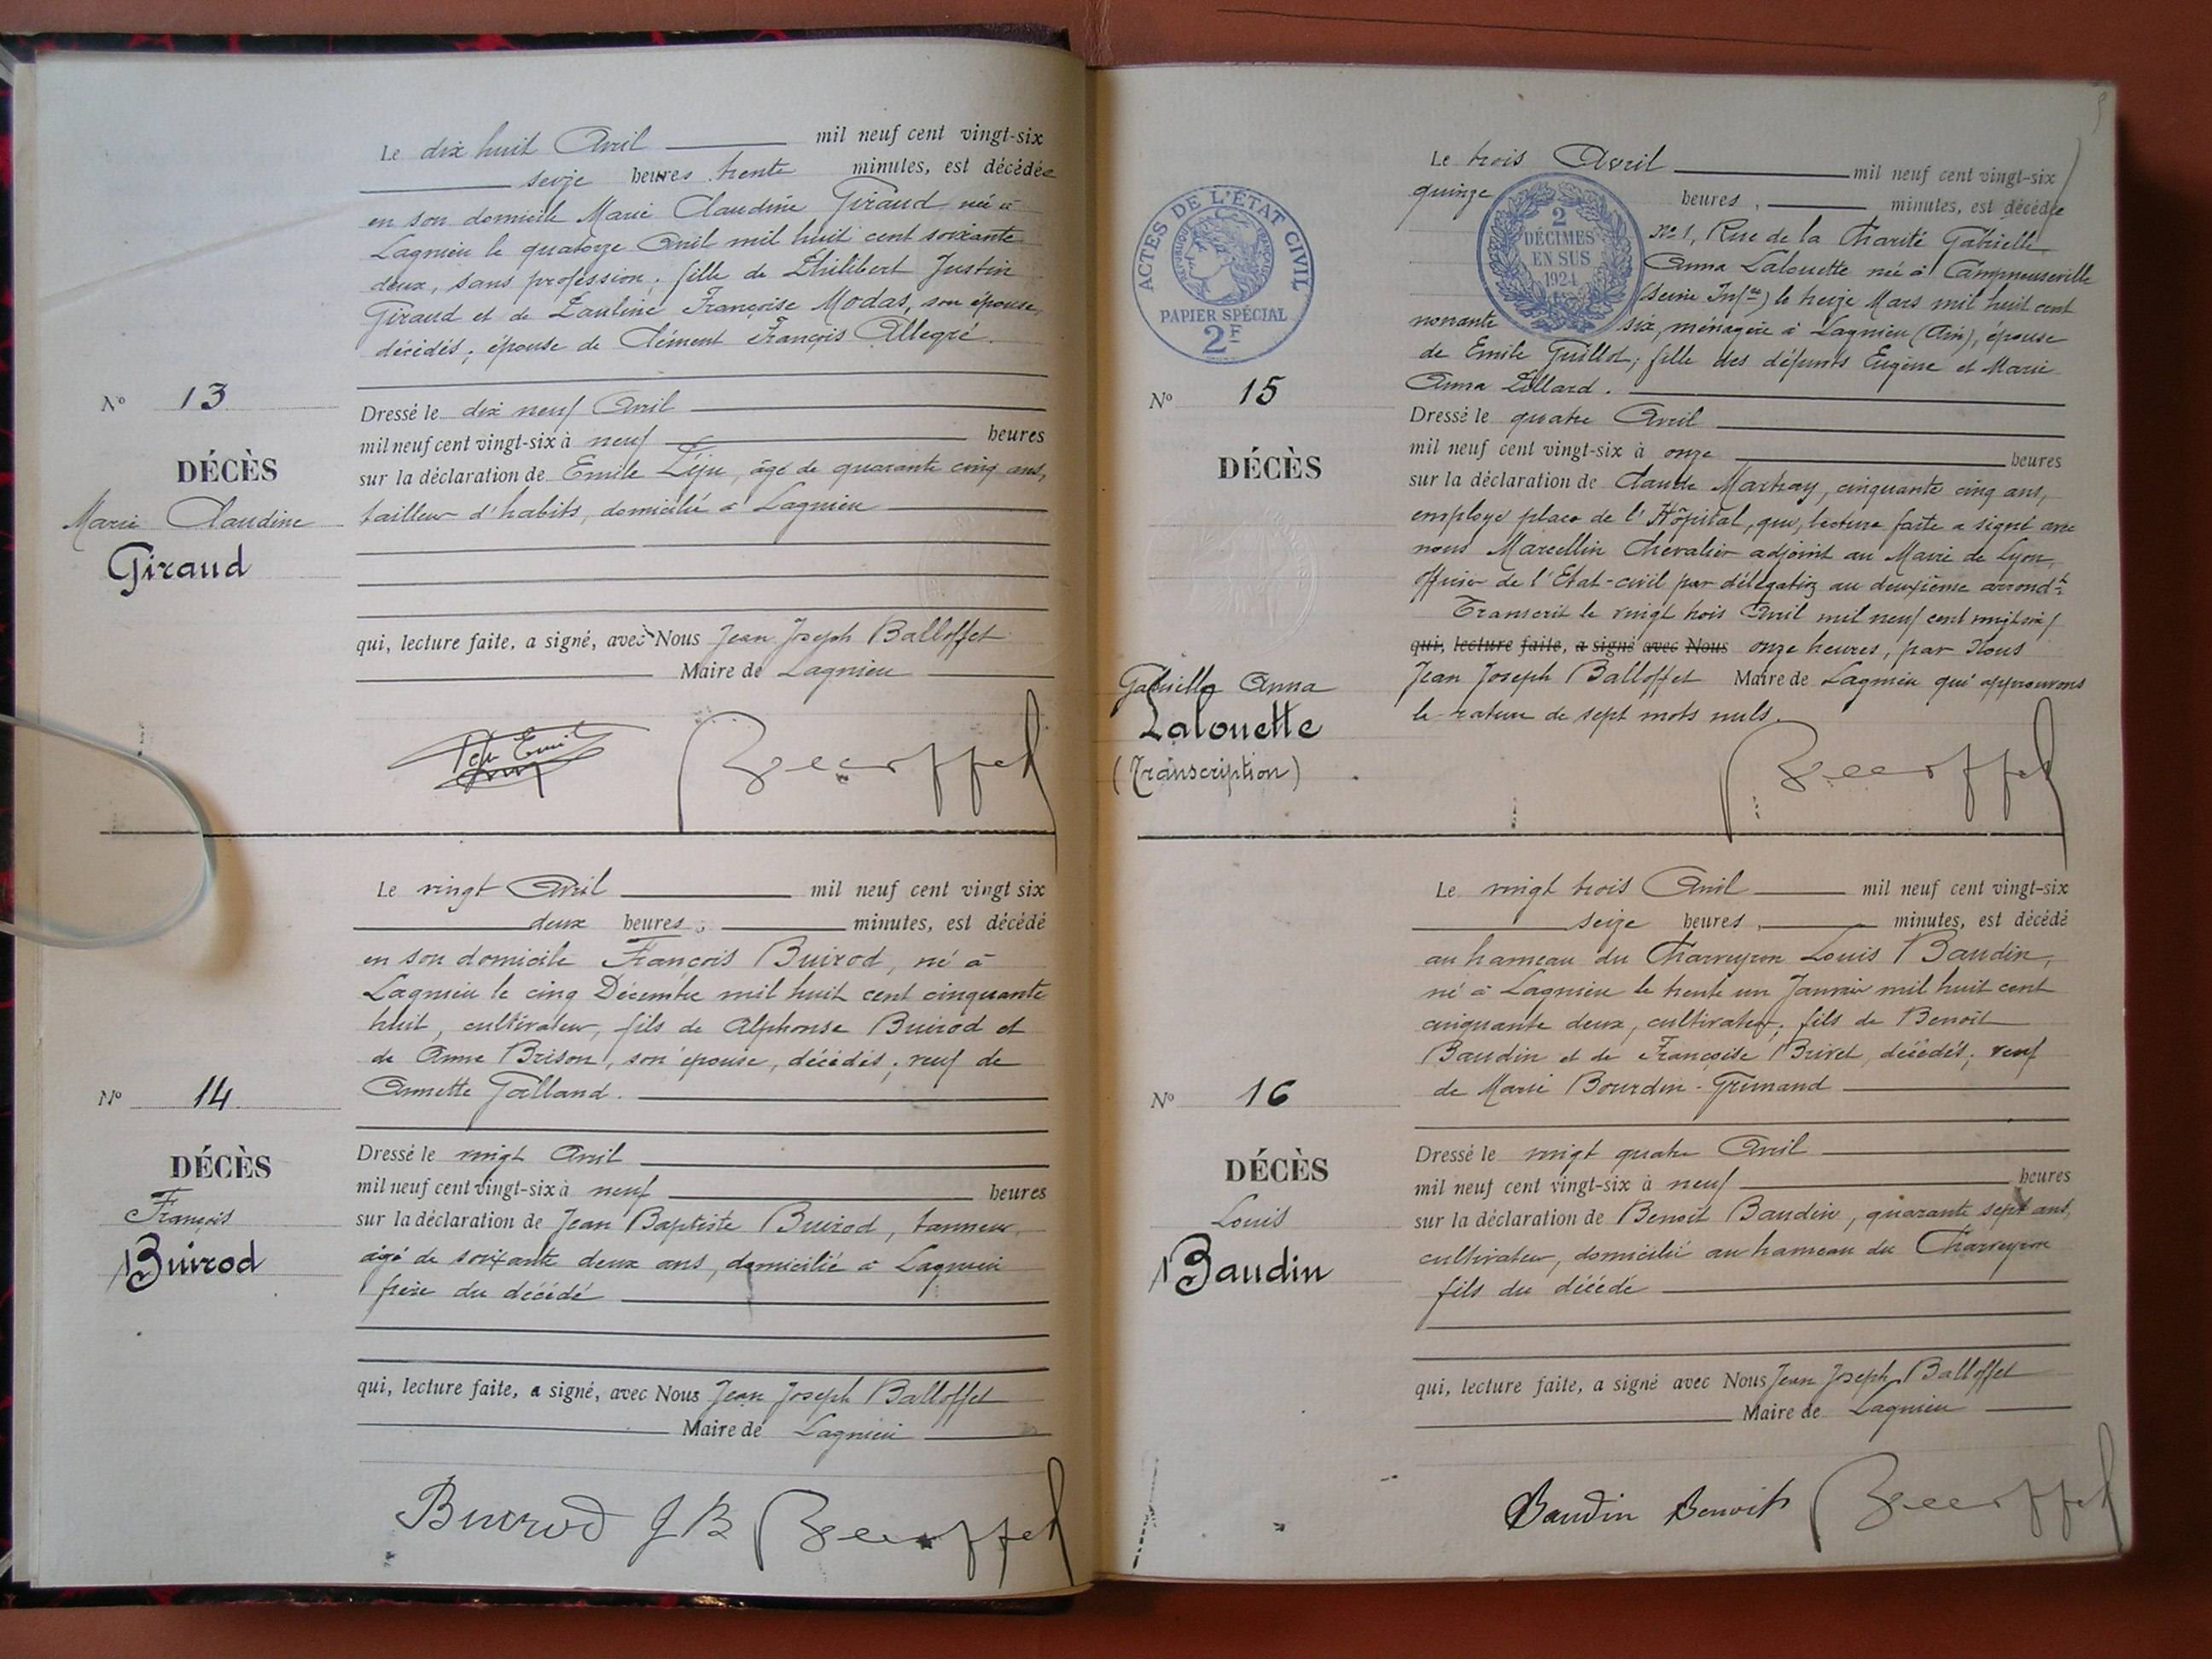 Le dix huit Avril mil neuf cent vingt-six
seize heures trente minutes, est décédée
en son domicile Marie Claudine Giraud née à
Lagnieu le quatorze Avril mil huit cent soixante
deux, sans profession, fille de Philibert Justin
Giraud et de Pauline Françoise Modas, son épouse,
décédés; épouse de Clément François Allegré.
No 13
DÉCÈS
Marie Claudine
Giraud
Dressé le dix neuf Avril
mil neuf cent vingt-six à neuf heures
sur la déclaration de Emile , âgé de quarante cinq ans,
tailleur d'habits, domicilié à Lagnieu
qui, lecture faite, a signé, avec Nous Jean Joseph Balloffet
Maire de Lagnieu
Balloffet
Le vingt Avril mil neuf cent vingt six
deux heures, minutes, est décédé
en son domicile François Buirod, né à
Lagnieu le cinq Décembre mil huit cent cinquante
huit, cultivateur, fils de Alphonse Buirod et
de Anne Brison, son épouse, décédés; veuf de
Annette Galland.
No 14
DÉCÈS
François
Buirod
Dressé le vingt Avril
mil neuf cent vingt-six à neuf heures
sur la déclaration de Jean Baptiste Buirod, tanneur,
âgé de soixante deux ans, domicilié à Lagnieu
frère du décédé
qui, lecture faite, a signé, avec Nous Jean Joseph Balloffet
Maire de Lagnieu
Buirod J B Balloffet
ACTES DE L'ÉTAT CIVIL
RÉPUBLIQUE FRANÇAISE
PAPIER SPÉCIAL
2F
2
DÉCIMES
EN SUS
1924
Le trois Avril mil neuf cent vingt-six
quinze heures, minutes, est décédée
No 1, Rue de la Charité Gabrielle
Anna Lalouette née à Campneuseville
(Seine Infre) le treize Mars mil huit cent
nonante six, ménagère à Lagnieu (Ain), épouse
de Emile Guillot; fille des défunts Eugène et Marie
Anna Lillard.
No 15
DÉCÈS
Gabrielle Anna
Lalouette
(Transcription)
Dressé le quatre Avril
mil neuf cent vingt-six à onze heures
sur la déclaration de Claude Martray, cinquante cinq ans,
employé place de l'Hôpital, qui, lecture faite a signé avec
nous Marcellin Chevalier adjoint au Maire de Lyon,
officier de l'Etat-civil par délégation au deuxième arrondt
Transcrit le vingt trois Avril mil neuf cent vingt six
qui, lecture faite, a signé avec Nous onze heures, par Nous
Jean Joseph Balloffet Maire de Lagnieu qui approuvons
la rature de sept mots nuls.
Balloffet
Le vingt trois Avril mil neuf cent vingt-six
seize heures, minutes, est décédé
au hameau du Charveyron Louis Baudin,
né à Lagnieu le trente un Janvier mil huit cent
cinquante deux, cultivateur, fils de Benoît
Baudin et de Françoise Brivet, décédés; veuf
de Marie Bourdin-Grimand
No 16
DÉCÈS
Louis
Baudin
Dressé le vingt quatre Avril
mil neuf cent vingt-six à neuf heures
sur la déclaration de Benoît Baudin, quarante sept ans,
cultivateur, domicilié au hameau du Charveyron
fils du décédé
qui, lecture faite, a signé avec Nous Jean Joseph Balloffet
Maire de Lagnieu
Baudin Benoit Balloffet